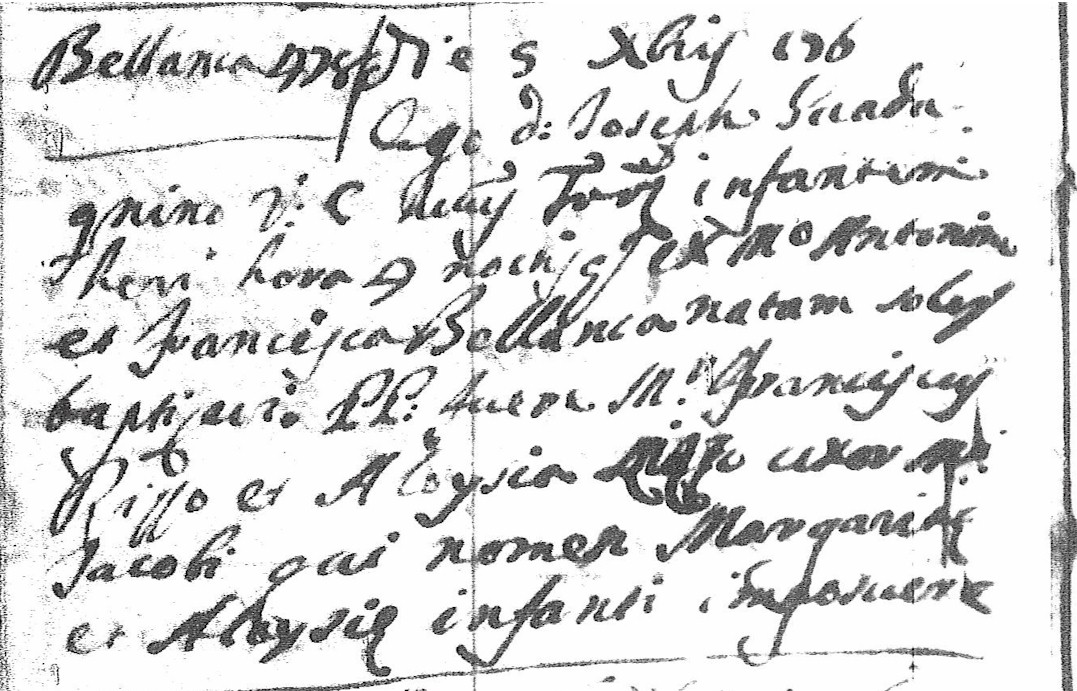 Bellanca Die 5 Xbris 176
Ego D: Joseph Guada
gnino V: C huius infantem
heri hora noctis ex Mo Antonino
et Francisca Bellanca natam solus
baptizavi. PP. fuere Mr Franciscus
Rizzo et Aloysia Rizzo uxor Mri
Jacobi qui nomen Margaritę
et Aloysię infanti imposuere